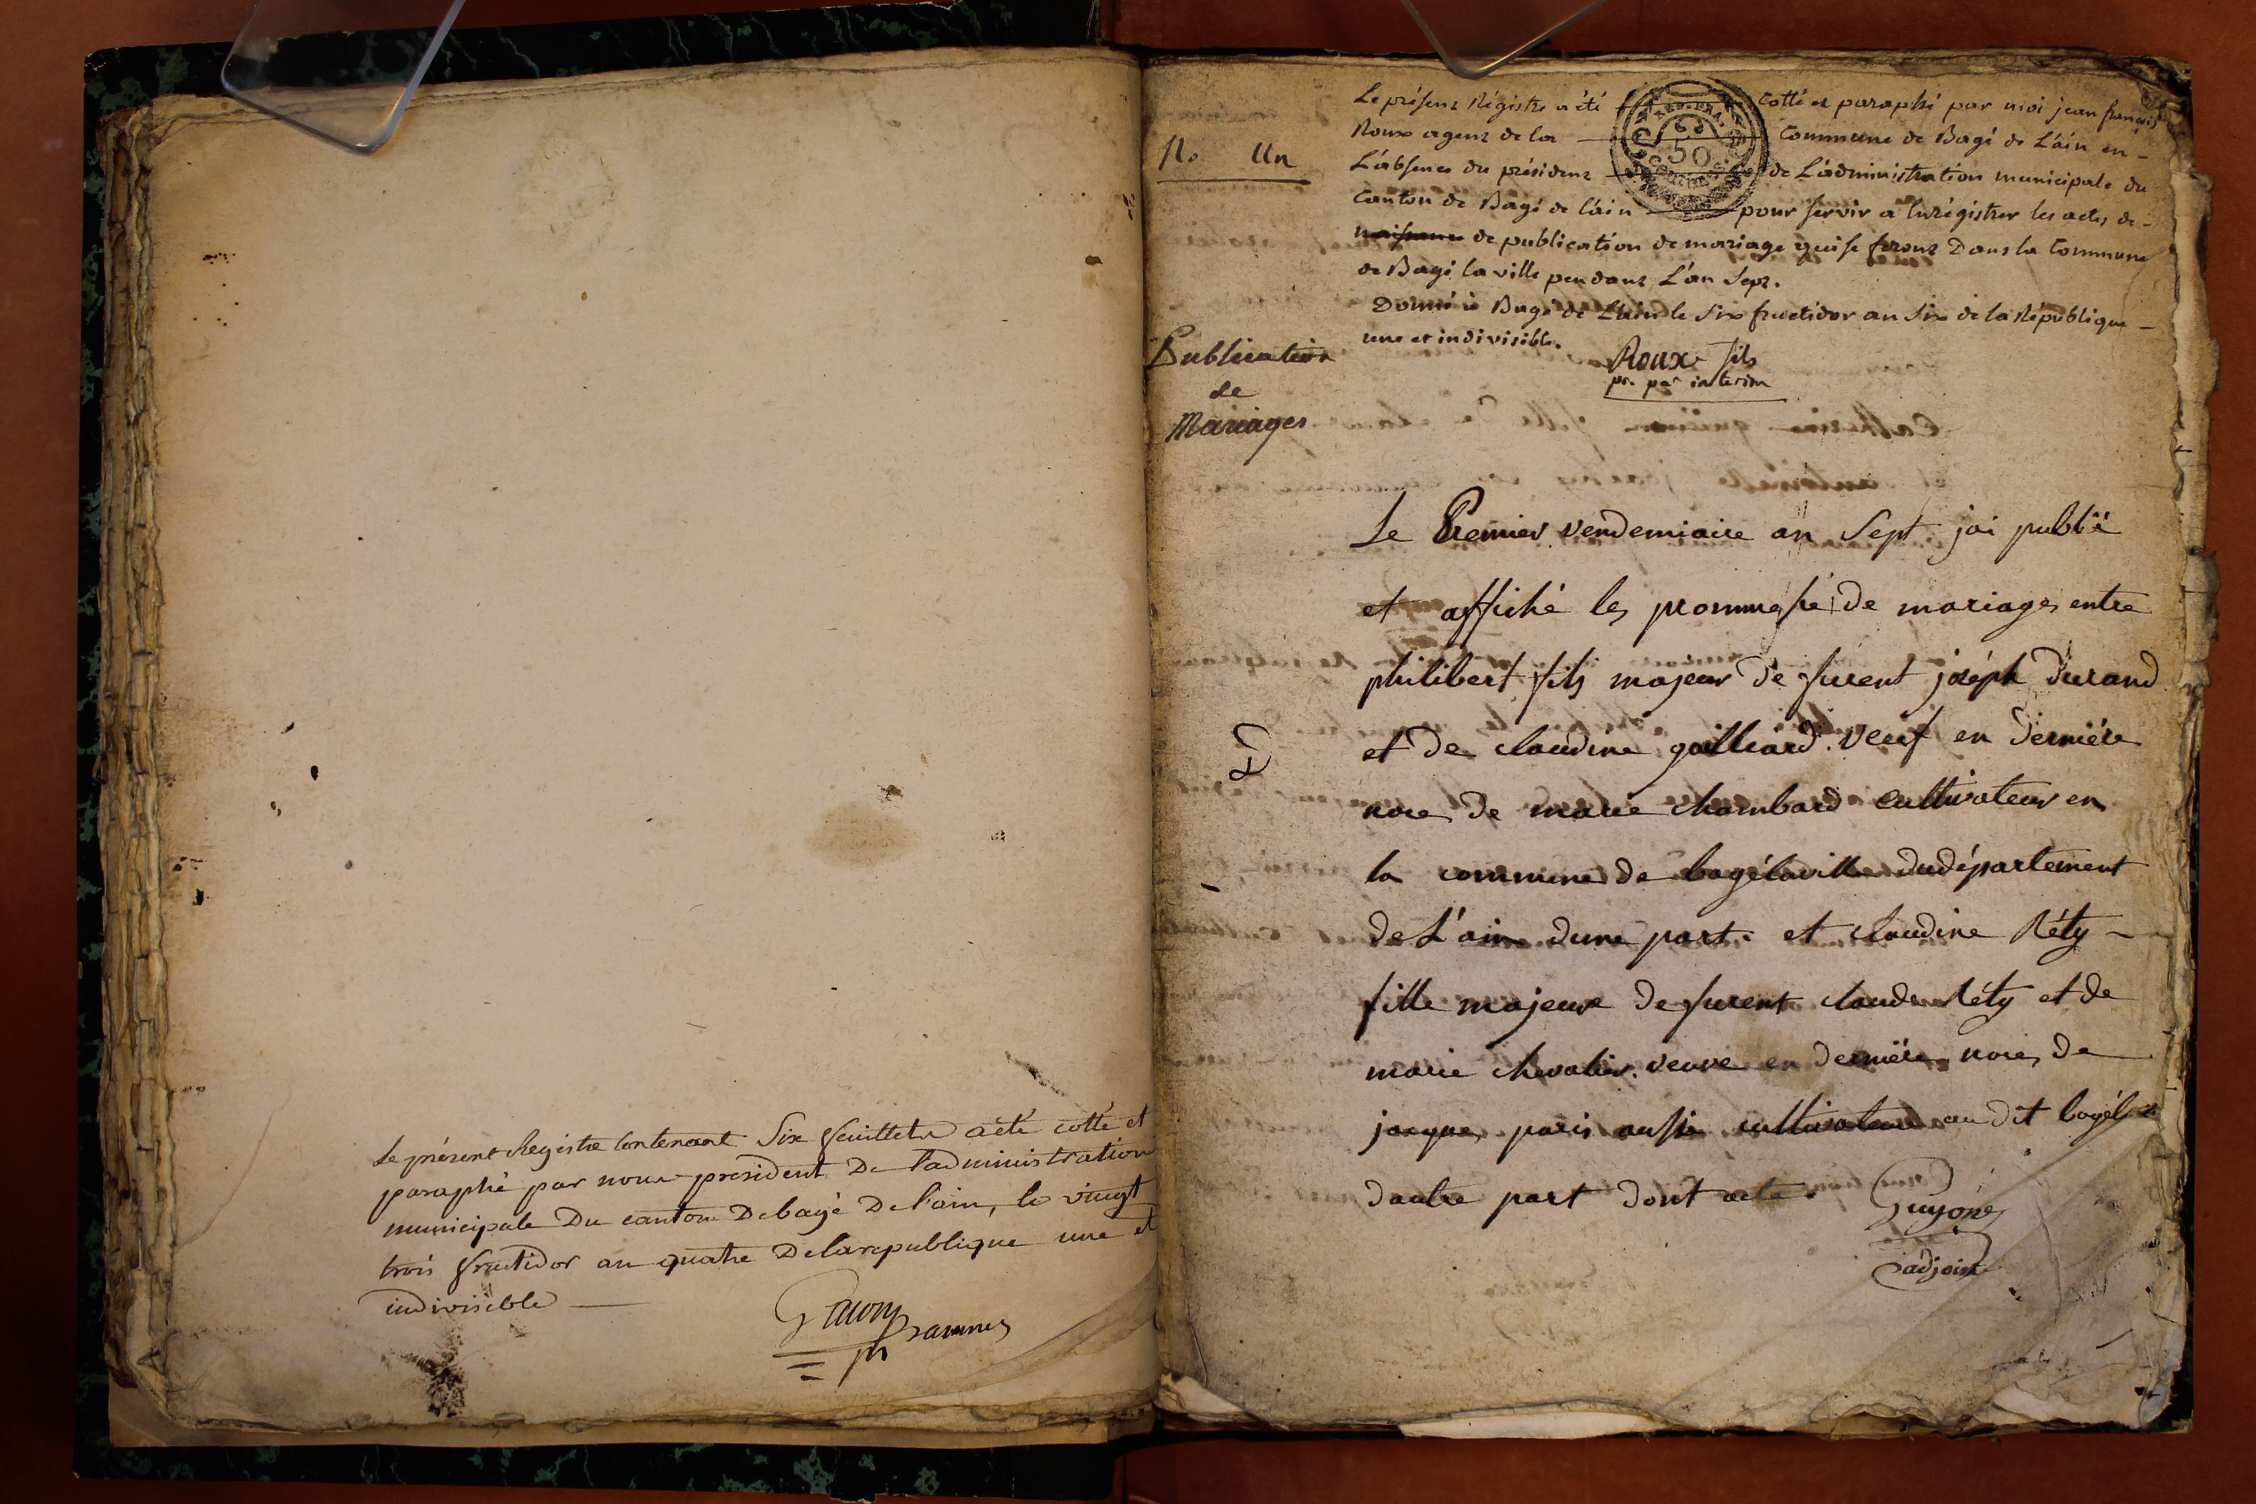 Le présent Registre Contenant Six feuillets a été cotté et
paraphé par nous president De l'administration
municipale Du canton De bagé De l'ain, le vingt
trois fructidor an quatre De la republique une et
indivisible
No Un
Publication
de
Mariages
Le présent Régistre a été cotté et paraphé par moi jean françois
Roux agent de la Commune de Bagé de L'ain en
L'absence du président de L'administration municipale du
Canton de Bagé de l'ain pour servir a Enrégistrer les actes de
naissance de publication de mariage qui se feront Dans la Commune
de Bagé la ville pendant L'an Sept.
Donné à Bagé de L'ain le Six fructidor an Six de la République
une et indivisible.
Roux fils
pr. par interim
50
Le Premier vendemiaire an Sept jai publié
et affiché les prommesse de mariages entre
philibert fils majeur de furent joséph Durand
et De claudine gailliard veuf en derniére
noce De marie chambard cultivateur en
la commune de bagélaville dudépartement
de L'ain dune part. et claudine Réty
fille majeure de furent claude Réty et de
marie chevalier veuve en derniére noce, de
jacque, paris aussi cultivateur au dit bagél
dautre part dont acte. Guyone
adjoint